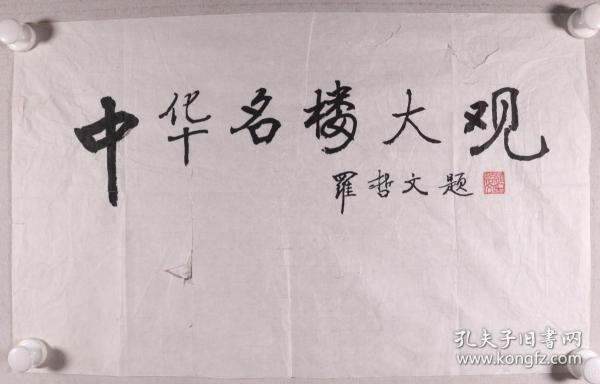 中华名楼大观
羅哲文题
孔夫子旧书网
www.kongfz.com